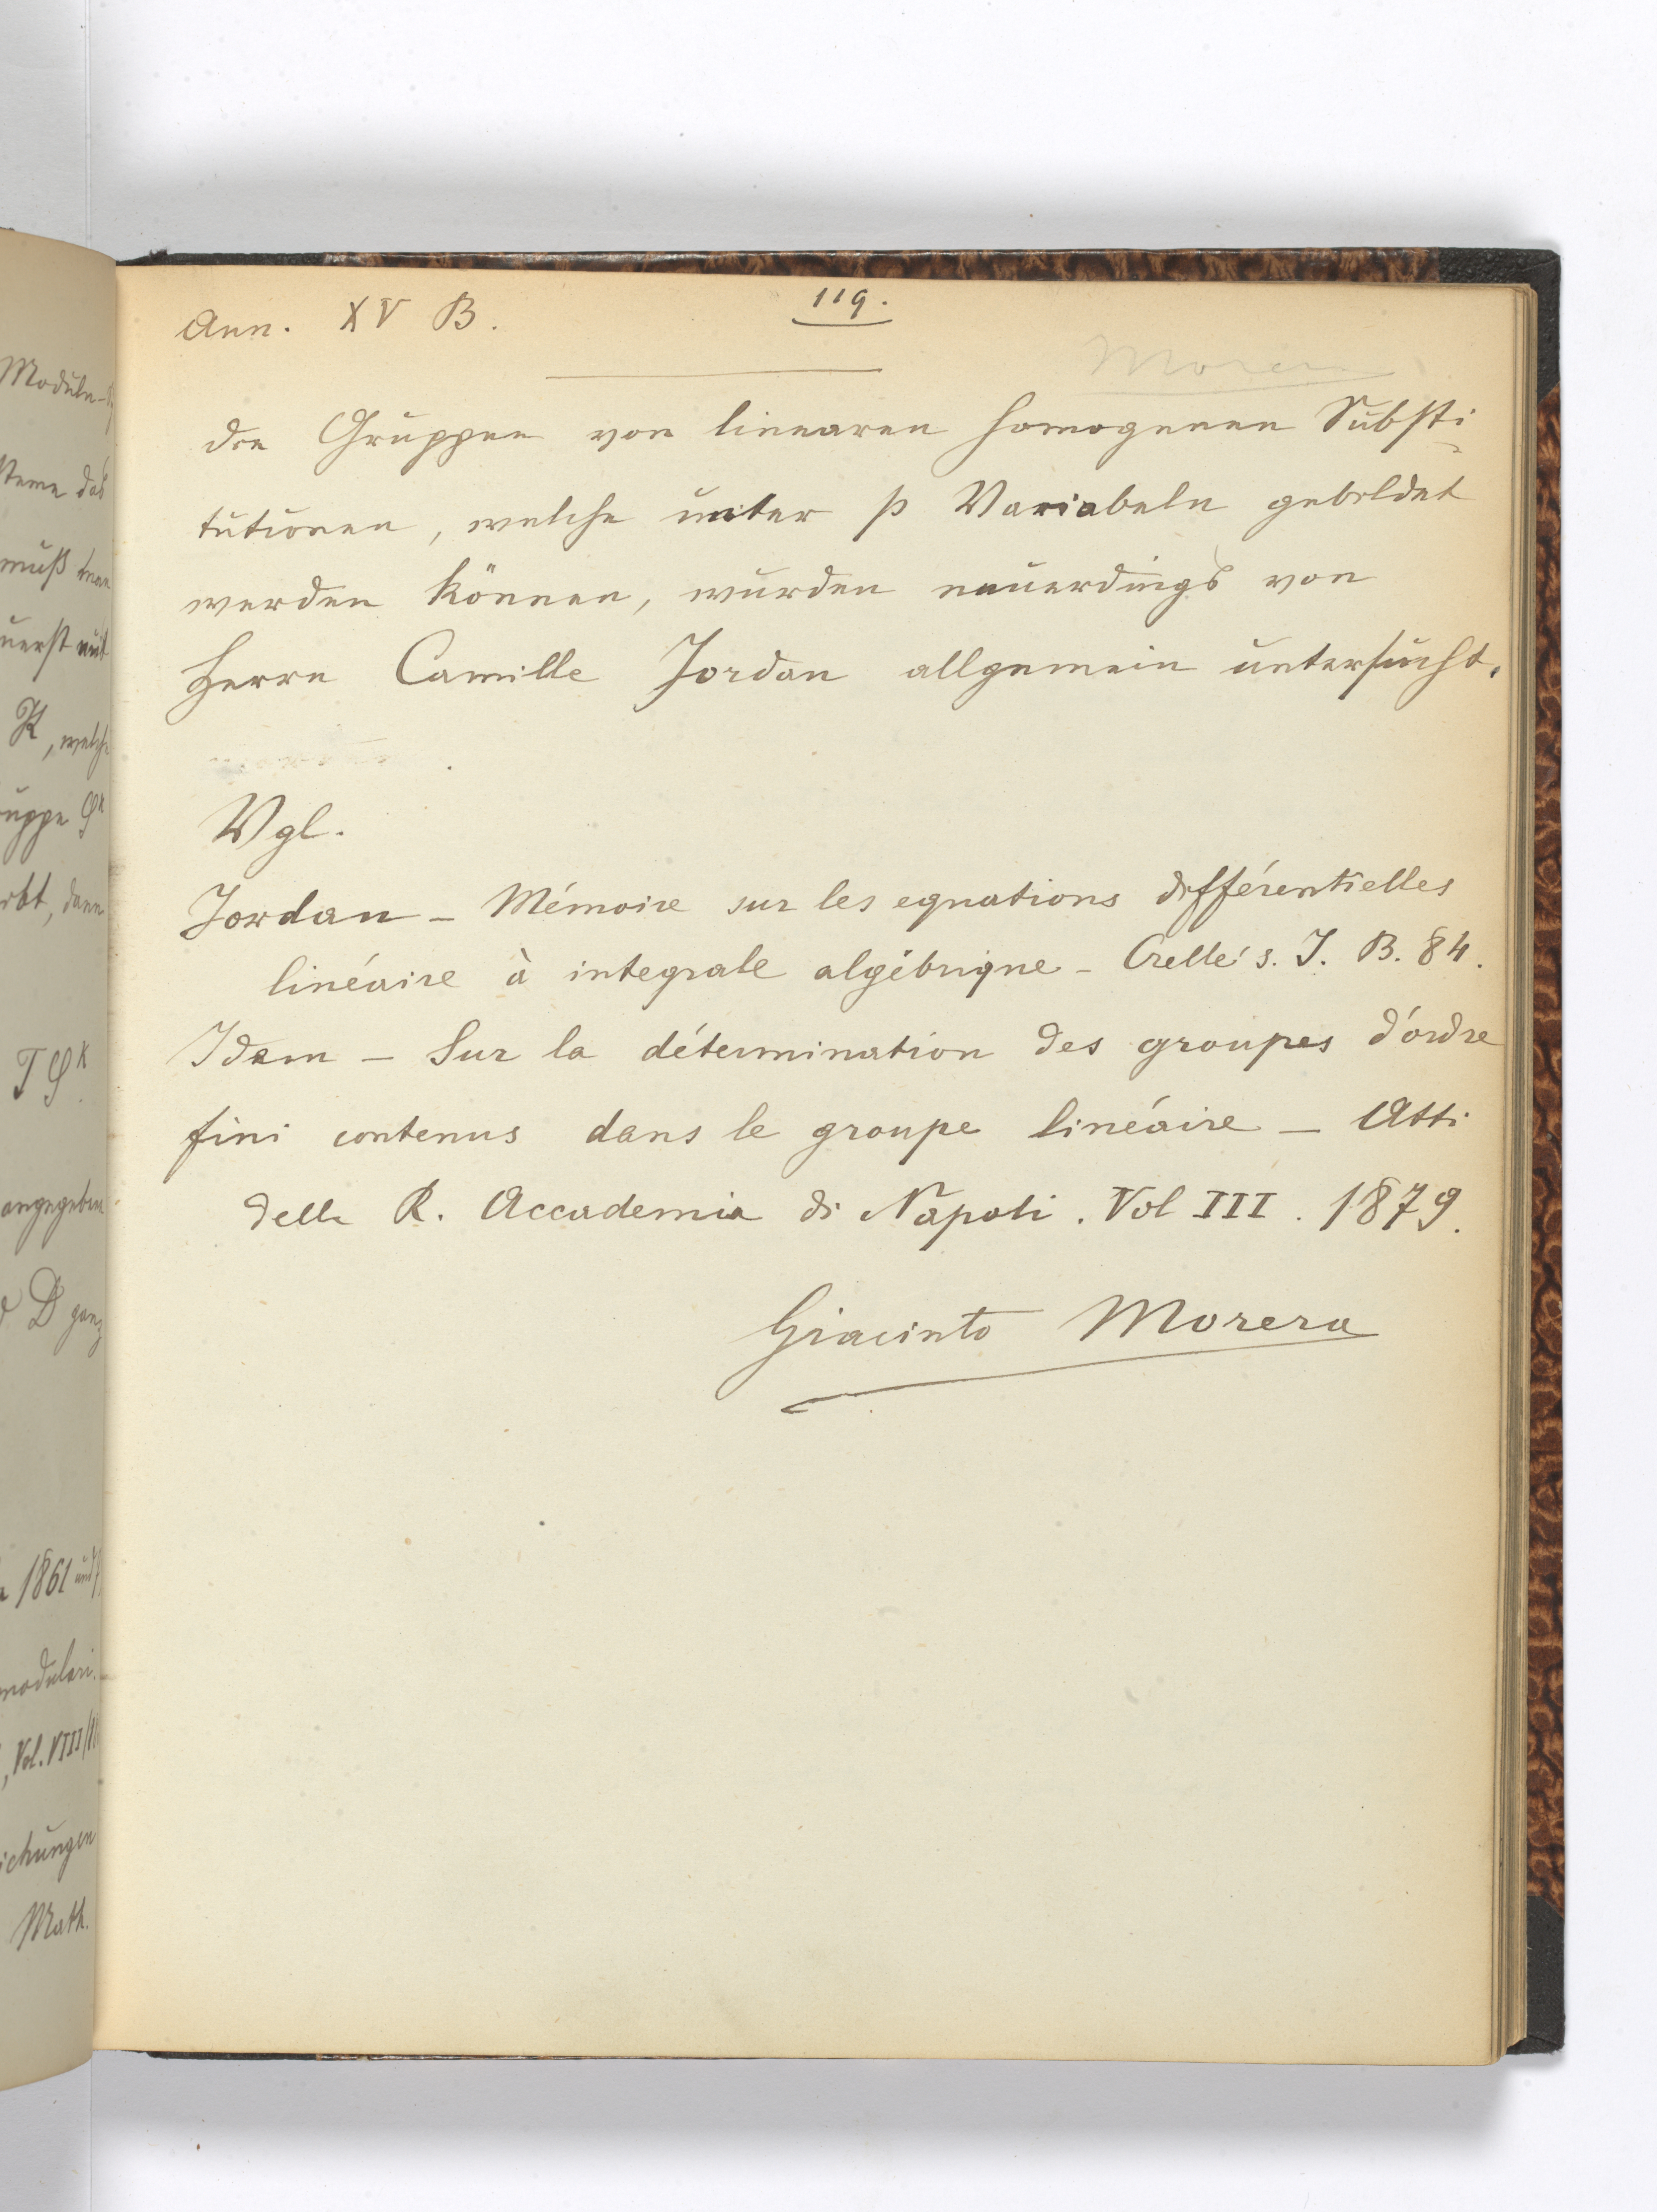 Ann. XV B.
119.
Morera
der Gruppen von linearen homogenen Substi-
tutionen, welche unter p Variabeln gebildet
werden können, wurden neuerdings von
Herrn Camille Jordan allgemein untersucht.
Vgl.
Jordan – Mémoire sur les equations différentielles
linéaire à integrale algébrique – Crelle's. J. B. 84.
Idem – Sur la détermination des groupes d'ordre
fini contenus dans le groupe linéaire – Atti
della R. Accademia di Napoli. Vol III. 1879.
Giacinto Morera
Moduln-
muß man
K, welche
TS^k.
angegeben
D ganz
1861 und
modulari.
, Vol. VIII/
ichungen
Math.